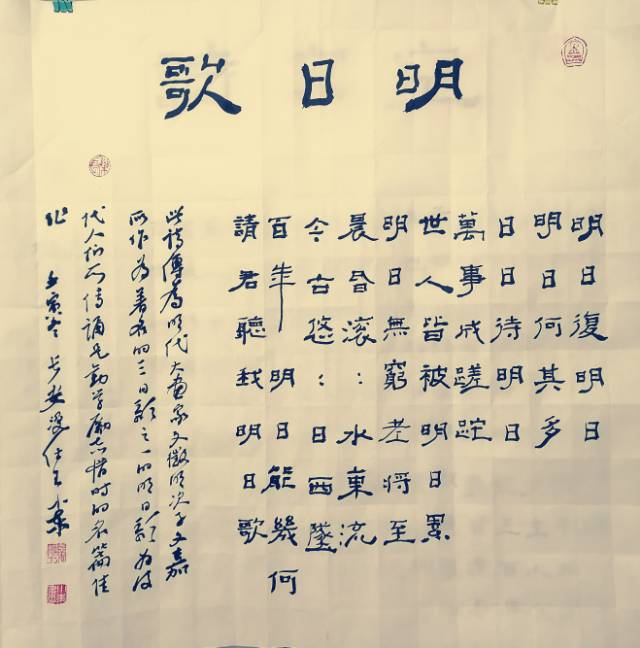 明日歌
明日復明日
明日何其多
日日待明日
萬事成蹉跎
世人皆被明日累
明日無窮老將至
晨昏滚：水東流
今古悠：日西墜
百年明日能幾何
請君聽我明日歌
此詩傳為明代大畫家文徵明次子文嘉
所作為著名的三日歌之一的明日歌為後
代人们所傳誦乃勤学励志惜時的名篇佳
作 壬寅冬 长安